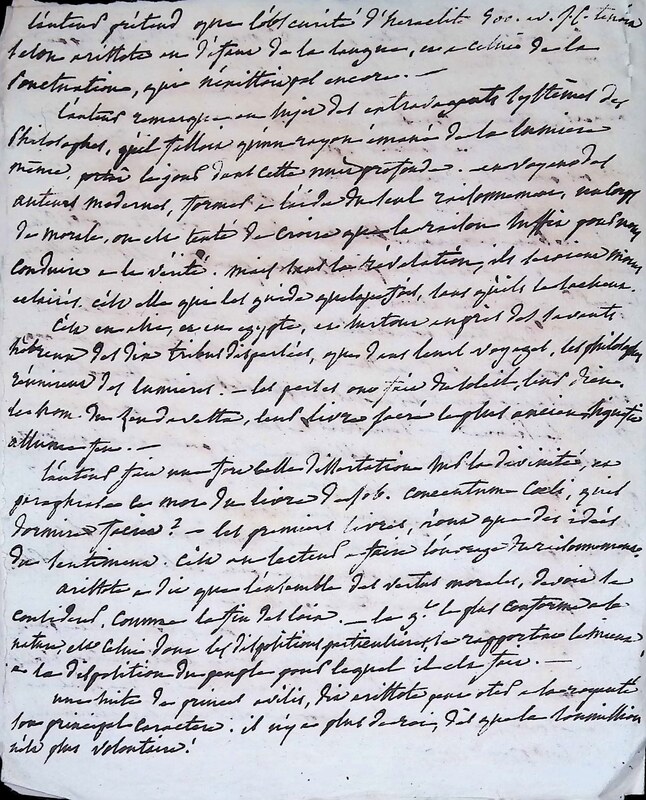 l'auteur prétend que l'obscurité d'Heraclite 500. av. J.C. tenoit
selon aristote au défaut de la langue, et a celui de la
ponctuation, qui n'existoit pas encore. —
l'auteur remarque au sujet des extravagants systêmes des
philosophes, qu'il falloit qu'un rayon émané de la lumiere
même, portat le jour dans cette nuit profonde. — en voyant des
auteurs modernes, formés a l'aide du seul raisonnement, un corps
de morale, on est tenté de croire que la raison suffit pour nous
conduire a la vérité. mais sans la révélation, ils seroient moins
éclairés. c'est elle qui les guide quelquefois, sans qu'ils le sachent.
C'est en asie, et en egypte, et surtout auprès des savants
hébreux des dix tribus dispersées, que dans leurs voyages, les philosophes
réunirent des lumieres. — les perses ont fait du soleil, leur dieu.
le nom du zendavesta, leur livre sacré le plus ancien, signifie
allume feu. —
l'auteur fait une fort belle dissertation sur la divinité, et
paraphrase ce mot du livre de Job. concentum coeli, quis
dormire faciet? — les premiers livres, n'ont que des idées
du sentiment. c'est au lecteur a faire l'ouvrage du raisonnement.
aristote a dit que l'ensemble des vertus morales, devoit se
considerer, comme la fin des loix. — le gt. le plus conforme a la
nature, est celui dont les dispositions particulières, se rapportent le mieux
a la disposition du peuple pour lequel il est fait. —
une suite de princes avilis, dit aristote peut oter a la royauté
son principal caractere. il n'y a plus de roi, dès que la soumission
n'est plus volontaire!